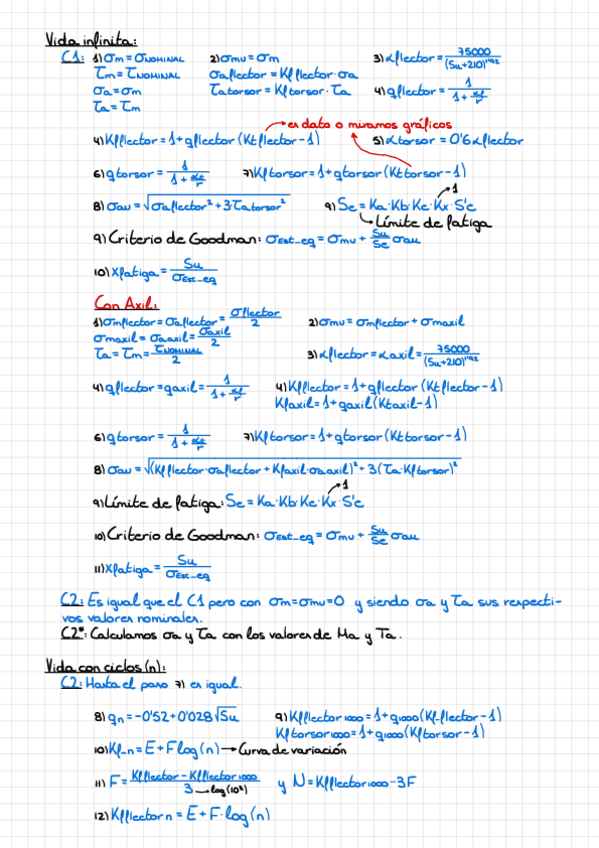 Vida infinita:
C1: 1) σm = σNOMINAL 2) σmu = σm 3) αflector = 75000/(Su+210)^1'92
τm = τNOMINAL σaflector = Kfflector · σa
σa = σm τatorsor = Kftorsor · τa 4) qflector = 1/(1 + αf/r)
τa = τm
es dato o miramos gráficos
4) Kfflector = 1 + qflector (Ktflector - 1) 5) αtorsor = 0'6αflector
6) qtorsor = 1/(1 + αc/r) 7) Kftorsor = 1 + qtorsor (Kttorsor - 1)
8) σau = √(σaflector² + 3τatorsor²) 9) Se = Ka·Kb·Kc·Kx·S'e
1
Límite de fatiga
9) Criterio de Goodman: σEst_eq = σmu + Su/Se σau
10) Xfatiga = Su/σEst_eq
Con Axil:
1) σmflector = σaflector = σflector/2 2) σmu = σmflector + σmaxil
σmaxil = σaaxil = σaxil/2
τa = τm = τNOMINAL/2 3) αflector = αaxil = 75000/(Su+210)^1'92
4) qflector = qaxil = 1/(1 + αf/r) 4) Kfflector = 1 + qflector (Ktflector - 1)
Kfaxil = 1 + qaxil (Ktaxil - 1)
6) qtorsor = 1/(1 + αc/r) 7) Kftorsor = 1 + qtorsor (Kttorsor - 1)
8) σau = √((Kfflector·σaflector + Kfaxil·σaaxil)² + 3(τa·Kftorsor)²)
1
9) Límite de fatiga: Se = Ka·Kb·Kc·Kx·S'e
10) Criterio de Goodman: σEst_eq = σmu + Su/Se σau
11) Xfatiga = Su/σEst_eq
C2: Es igual que el C1 pero con σm=σmu=0 y siendo σa y τa sus respecti-
vos valores nominales.
C2*: Calculamos σa y τa con los valores de Ma y Ta.
Vida con ciclos (n):
C2: Hasta el paso 7) es igual.
8) qn = -0'52 + 0'028√Su 9) Kfflector1000 = 1 + q1000 (Kfflector - 1)
Kftorsor1000 = 1 + q1000 (Kftorsor - 1)
10) Kf_n = E + F log(n) → Curva de variación
11) F = (Kfflector - Kfflector1000)/3 → log(10³) y N = Kfflector1000 - 3F
12) Kfflectorn = E + F·log(n)